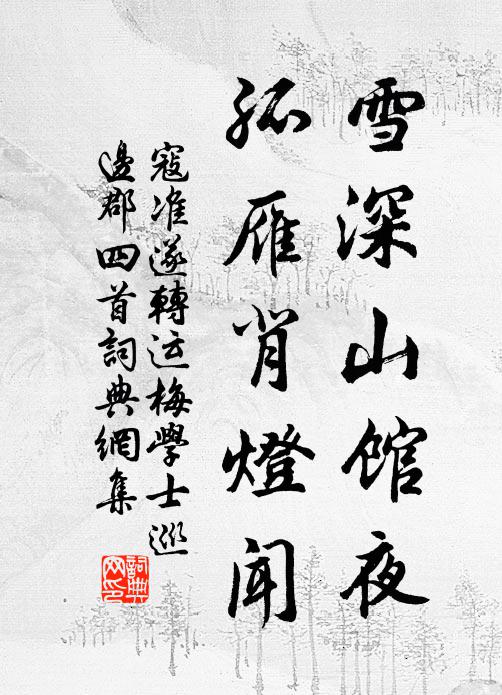 雪深山館夜
孤雁背燈聞
寇准送轉运梅學士巡
邊郡四首詞典網集
詞典
网印